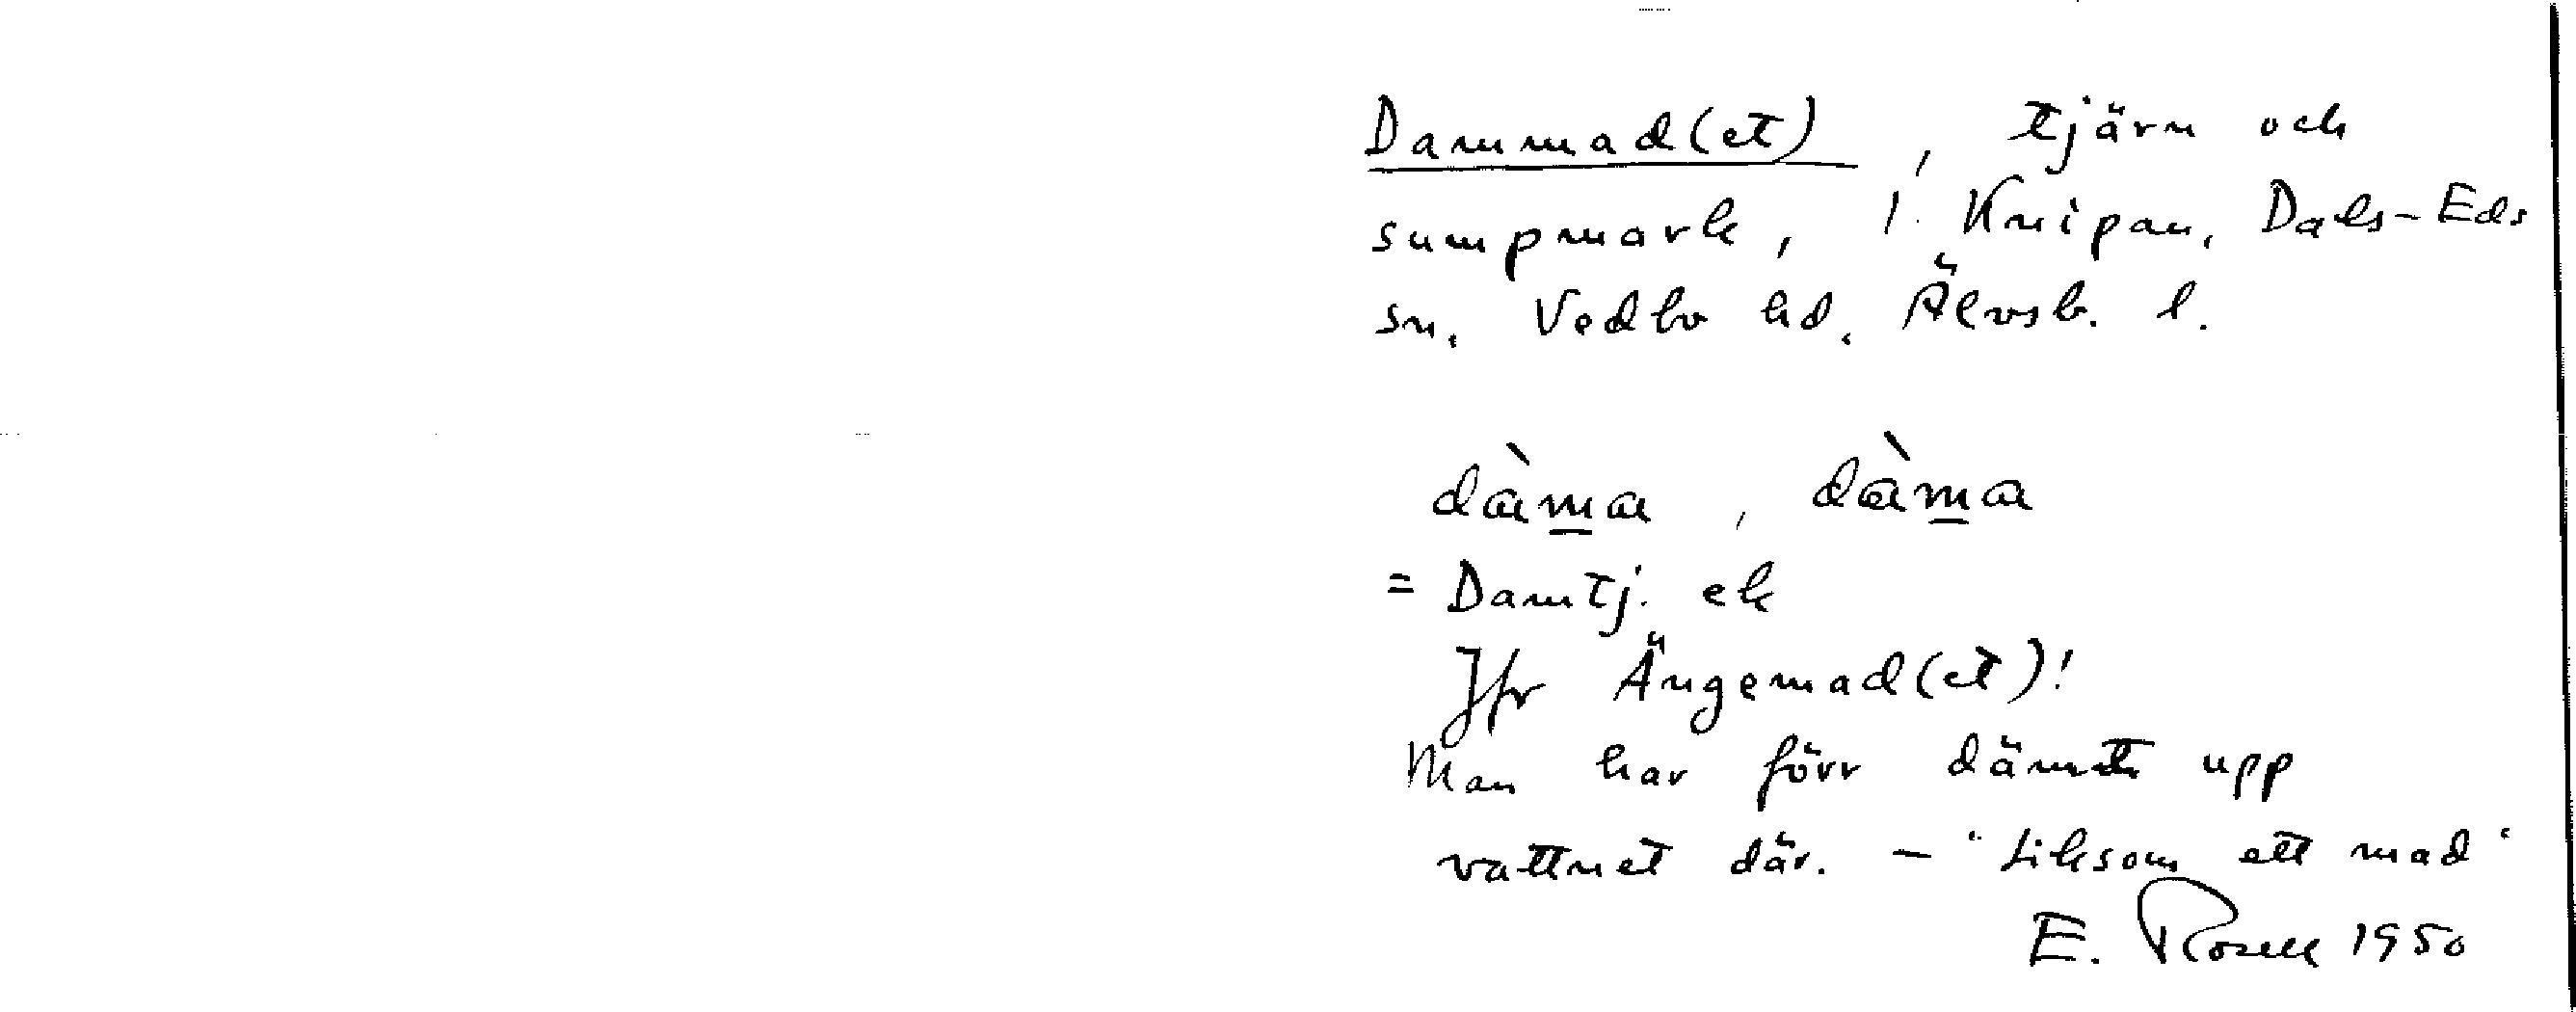 Dammad(et), tjärn och
sumpmark, 1. Knipan, Dals-Eds
sn. Vedbo hd. Älvsb. l.
dàm̲a, dàm̲a
= Damtj. ek
Jfr Ängemad(et)!
Man har förr dämt upp
vattnet där. - "Liksom ett mad"
E. Rosell 1950